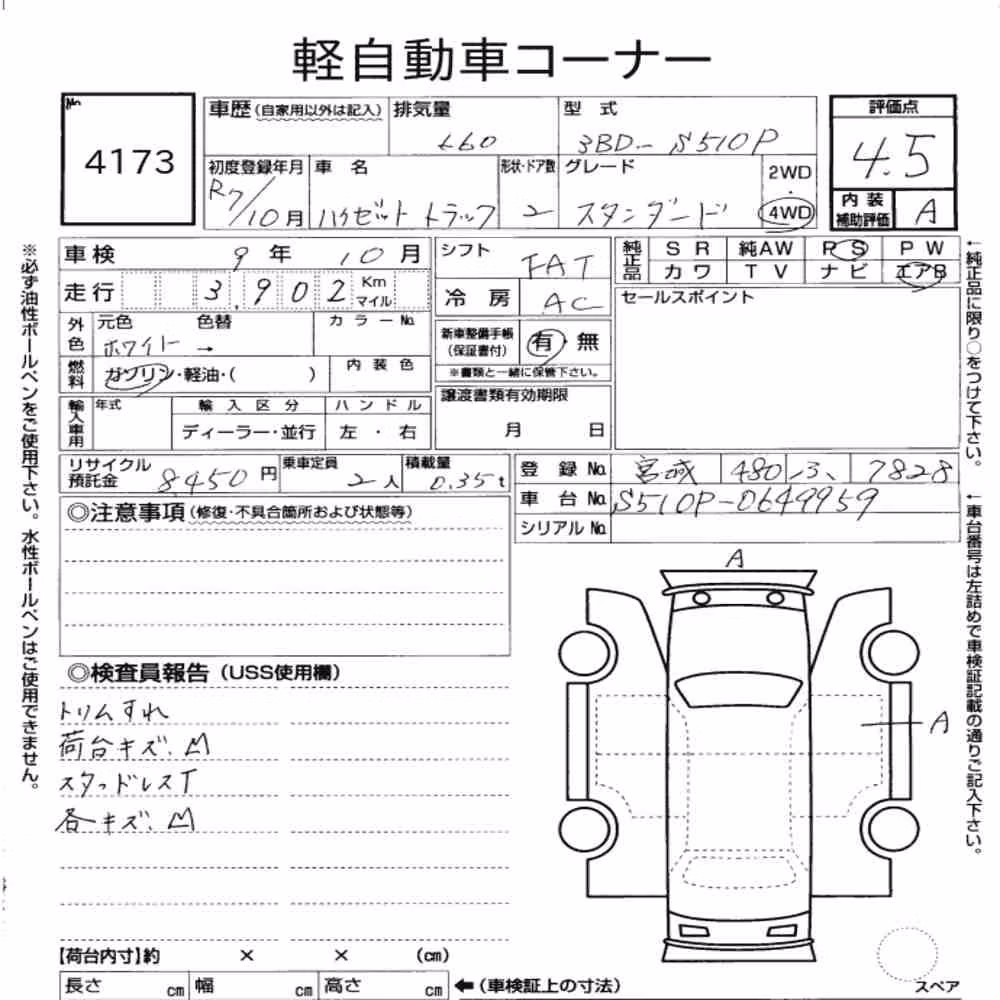 軽自動車コーナー
No 4173
車歴(自家用以外は記入) 排気量 660
型式 3BD- S510P
評価点 4.5
初度登録年月 R7/10月
車名 ハイゼット トラック
形状・ドア数 2
グレード スタンダード
2WD・4WD
内装補助評価 A
車検 9年 10月
シフト FAT
純正品 SR 純AW PS PW
カワ TV ナビ エアB
走行 3,902 Km マイル
冷房 AC
セールスポイント
外色 元色 ホワイト → 色替 カラーNo.
新車整備手帳(保証書付) 有・無
※書類と一緒に保管下さい。
燃料 ガソリン・軽油・( ) 内装色
譲渡書類有効期限 月 日
輸入車用 年式 輸入区分 ハンドル
ディーラー・並行 左・右
リサイクル預託金 8,450円 乗車定員 2人 積載量 0.35t
登録No. 宮城 480 7828
車台No. S510P-0649959
シリアルNo.
◎注意事項(修復・不具合箇所および状態等)
A
◎検査員報告(USS使用欄)
トリムすれ
荷台キズ、凹
スタッドレスT
各キズ、凹
A
【荷台内寸】約 × × (cm)
長さ cm 幅 cm 高さ cm ←(車検証上の寸法)
スペア
※必ず油性ボールペンをご使用下さい。水性ボールペンはご使用できません。
←純正品に限り○をつけて下さい。
←車台番号は左詰めで車検証記載の通りご記入下さい。